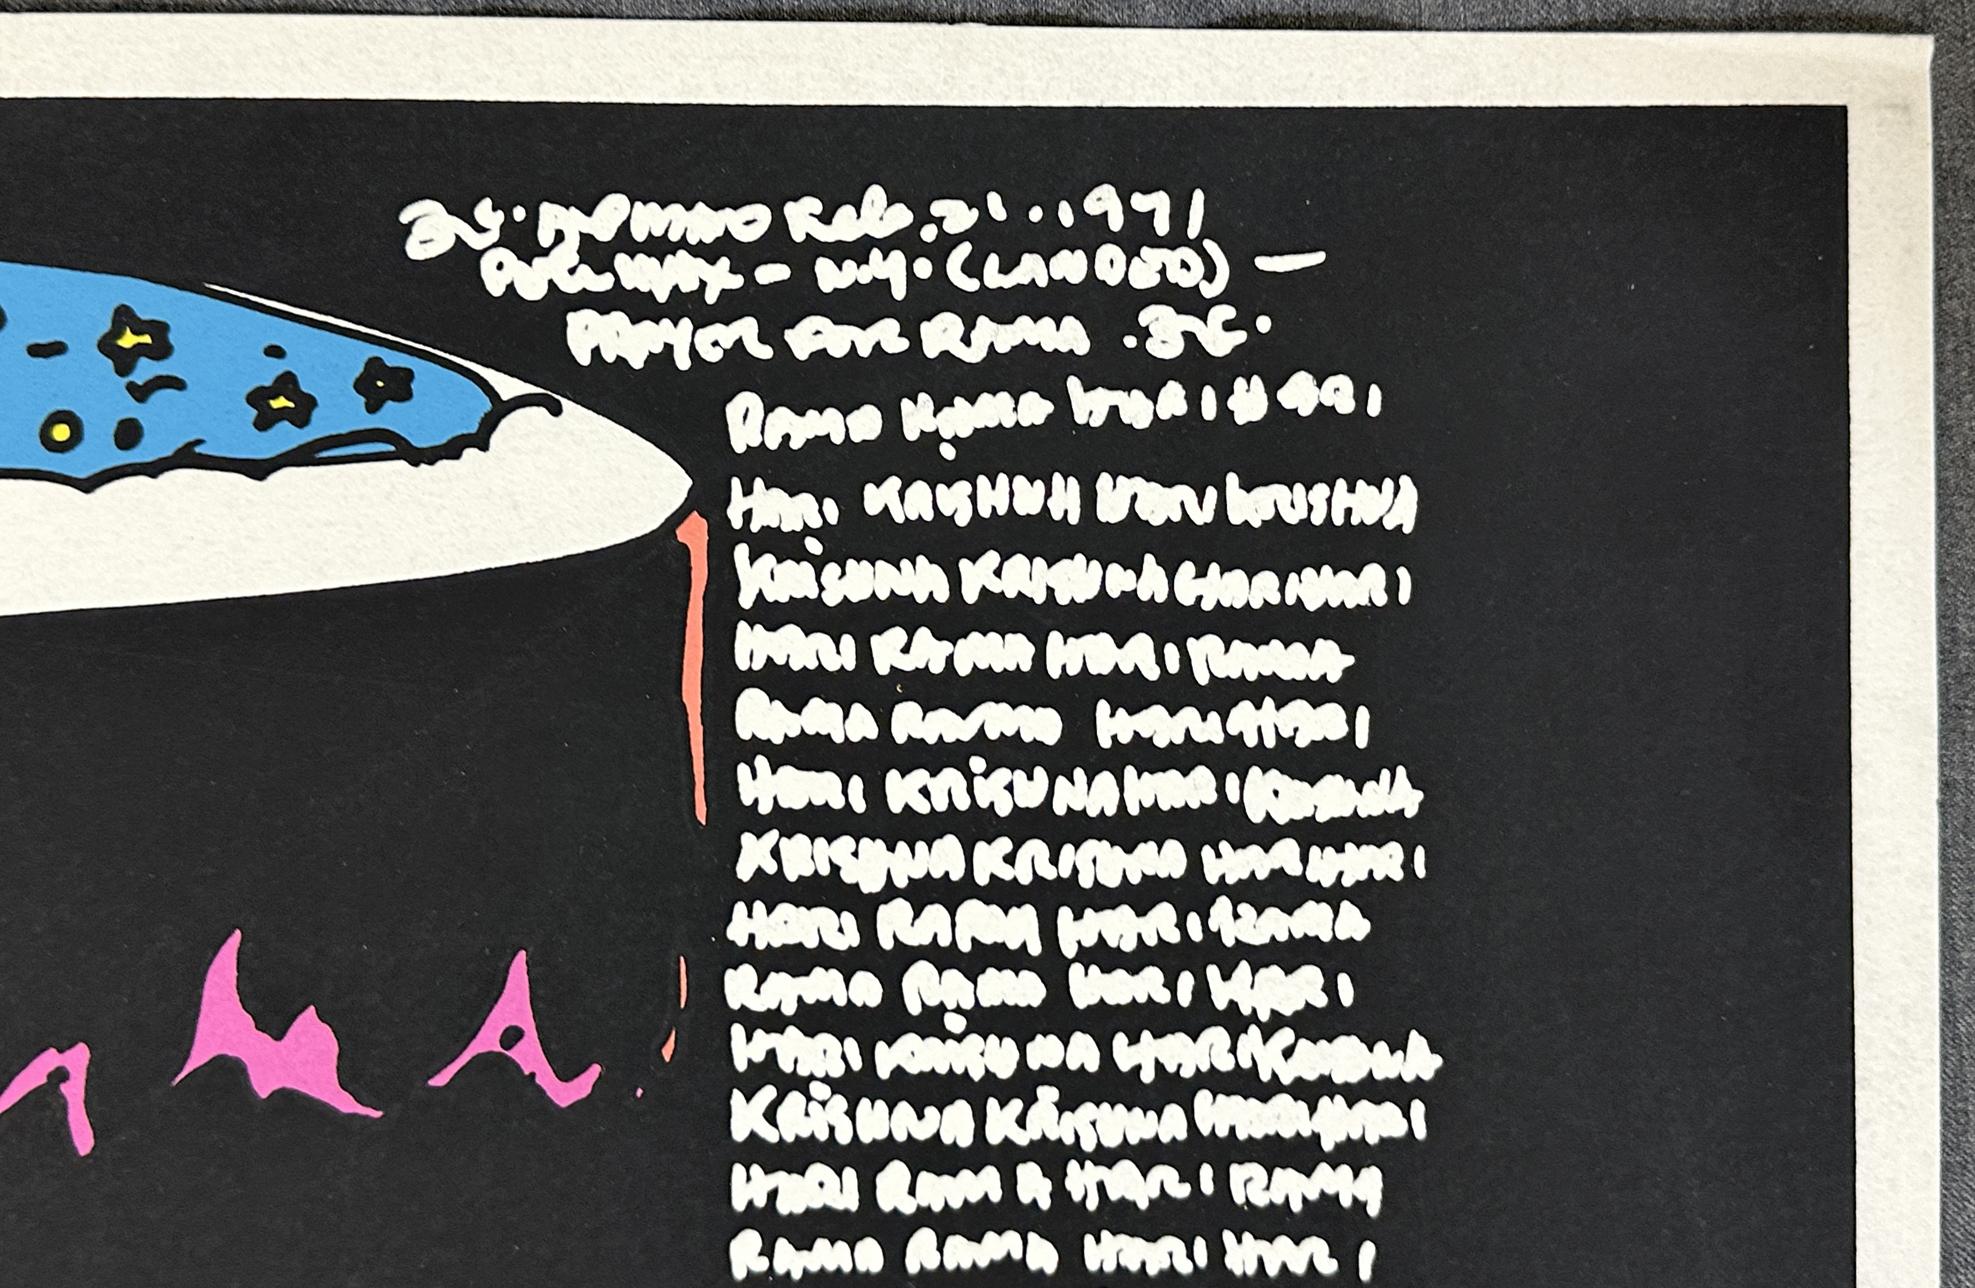 Feb. 21 . . 1971
- N.Y. (LANDED) —
PRAYER FOR RAMA .
RAMA RAMA HARI HARI
HARI KRISHNA HARI KRISHNA
KRISHNA KRISHNA HARI HARI
HARI RAMA HARI RAMA
RAMA RAMA HARI HARI
HARI KRISHNA HARI KRISHNA
KRISHNA KRISHNA HARI HARI
HARI RAMA HARI RAMA
RAMA RAMA HARI HARI
HARI KRISHNA HARI KRISHNA
KRISHNA KRISHNA HARI HARI
HARI RAMA HARI RAMA
RAMA RAMA HARI HARI